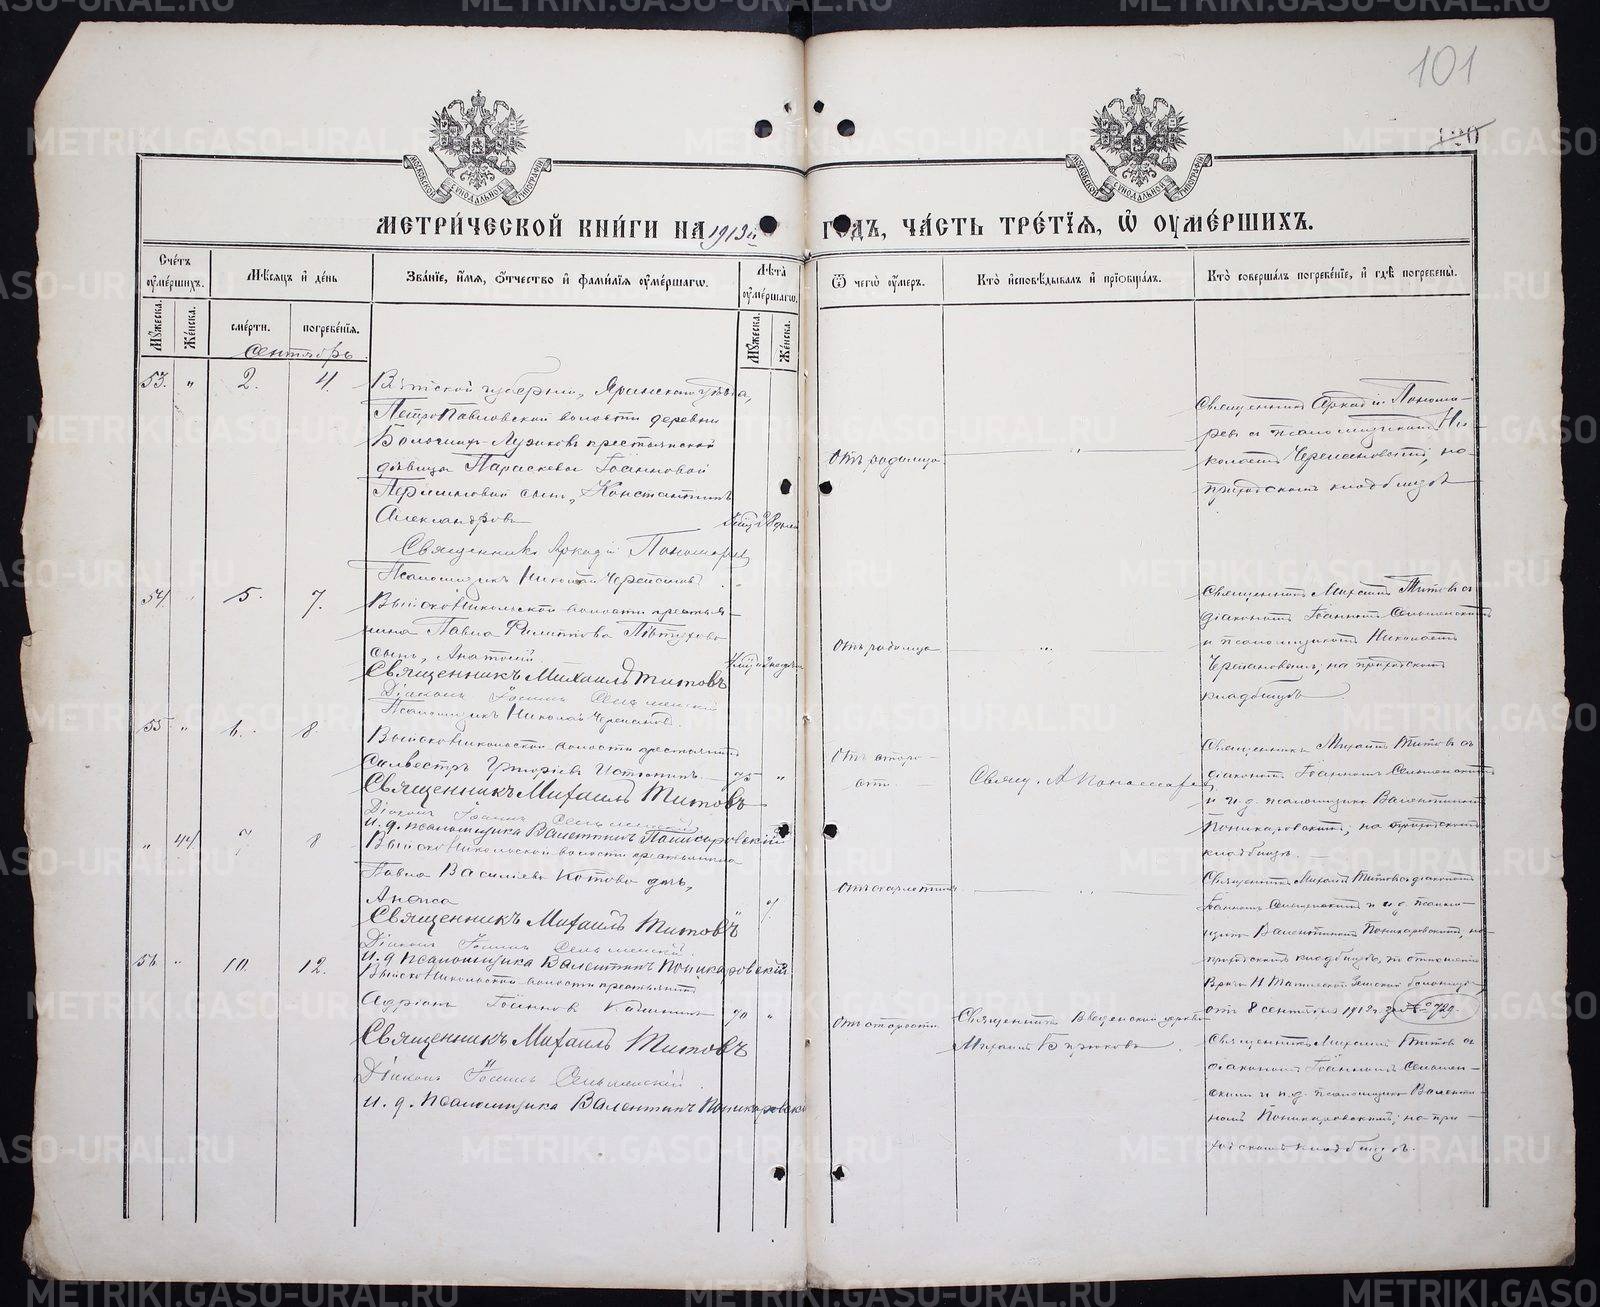 101
МЕТРИ́ЧЕСКОЙ КНИ́ГИ НА 1913й ГОДЪ, ЧА́СТЬ ТРЕ́ТЇЯ, Ѡ҆ ОУ҆МЕ́РШИХЪ.
Сче́тъ оу҆ме́ршихъ.
Мꙋ́жеска.
Же́нска.
Мѣ́сѧцъ и҆ де́нь
сме́рти.
погребе́нїѧ.
Зва́нїе, и҆́мѧ, ѻ҆́тчество и҆ фами́лїѧ оу҆ме́ршагѡ.
Лѣ́та оу҆ме́ршагѡ.
Мꙋ́жеска.
Же́нска.
Ѿ чегѡ̀ оу҆́меръ.
Кто̀ и҆сповѣ́дывалъ и҆ прїѡбща́лъ.
Кто̀ соверша́лъ погребе́нїе, и҆ гдѣ̀ погребены̀.
Сентябрь
53. " 2. 4.
Вятской губернии, Яранского уѣзда,
Петропавловской волости деревни
крестьянской
дѣвицы Параскевы Іоанновой
сынъ, Константинъ
Александровъ
Священникъ Аркадій Пономаревъ
Псаломщикъ Николай Черепановъ
Отъ родимца
Священникъ Аркадій Понома-
ревъ съ псаломщикомъ Ни-
колаемъ Черепановымъ, на
приходскомъ кладбищѣ
54. 5. 7.
Выйско-Никольской волости крестья-
нина Павла Филиппова Пѣтухова
сынъ, Анатолій
Священникъ Михаилъ Титовъ
Діаконъ Іоаннъ Сельменскій
Псаломщикъ Николай Черепановъ.
Отъ родимца
Священникъ Михаилъ Титовъ съ
діакономъ Іоанномъ Сельменскимъ
и псаломщикомъ Николаемъ
Черепановымъ, на приходскомъ
кладбищѣ
55 " 6. 8
Выйско-Никольской волости крестьянинъ
Сильвестръ Григоріевъ 75 "
Священникъ Михаилъ Титовъ
Діаконъ Іоаннъ Сельменскій
И. д. псаломщика Валентинъ Поникаровскій
Отъ старо-
сти.
Свящ. А Пономаревъ
Священникъ Михаилъ Титовъ съ
діакономъ Іоанномъ Сельменскимъ
и и. д. псаломщика Валентиномъ
Поникаровскимъ, на приходскомъ
кладбищѣ.
" 44 7 8
Выйско-Никольской волости крестьянина
Павла Василіева Котова дочь,
Анфиса
Священникъ Михаилъ Титовъ
Діаконъ Іоаннъ Сельменскій
И. д. псаломщика Валентинъ Поникаровскій
Отъ скарлатины
Священникъ Михаилъ Титовъ съ діакономъ
Іоанномъ Сельменскимъ и и. д. псалом-
щика Валентиномъ Поникаровскимъ, на
приходскомъ кладбищѣ, по отношенію
Врача Н Тагильской Земской больницы
отъ 8 сентября за № 729.
56 " 10. 12.
Выйско-Никольской волости крестьянинъ
Адріанъ Іоанновъ 70 "
Священникъ Михаилъ Титовъ
Діаконъ Іоаннъ Сельменскій.
И. д. псаломщика Валентинъ Поникаровскій
Отъ старости
Священникъ Введенской церкви
Михаилъ Бирюковъ
Священникъ Михаилъ Титовъ съ
діакономъ Іоанномъ Сельмен-
скимъ и и. д. псаломщика Валенти-
номъ Поникаровскимъ, на при-
ходскомъ кладбищѣ.